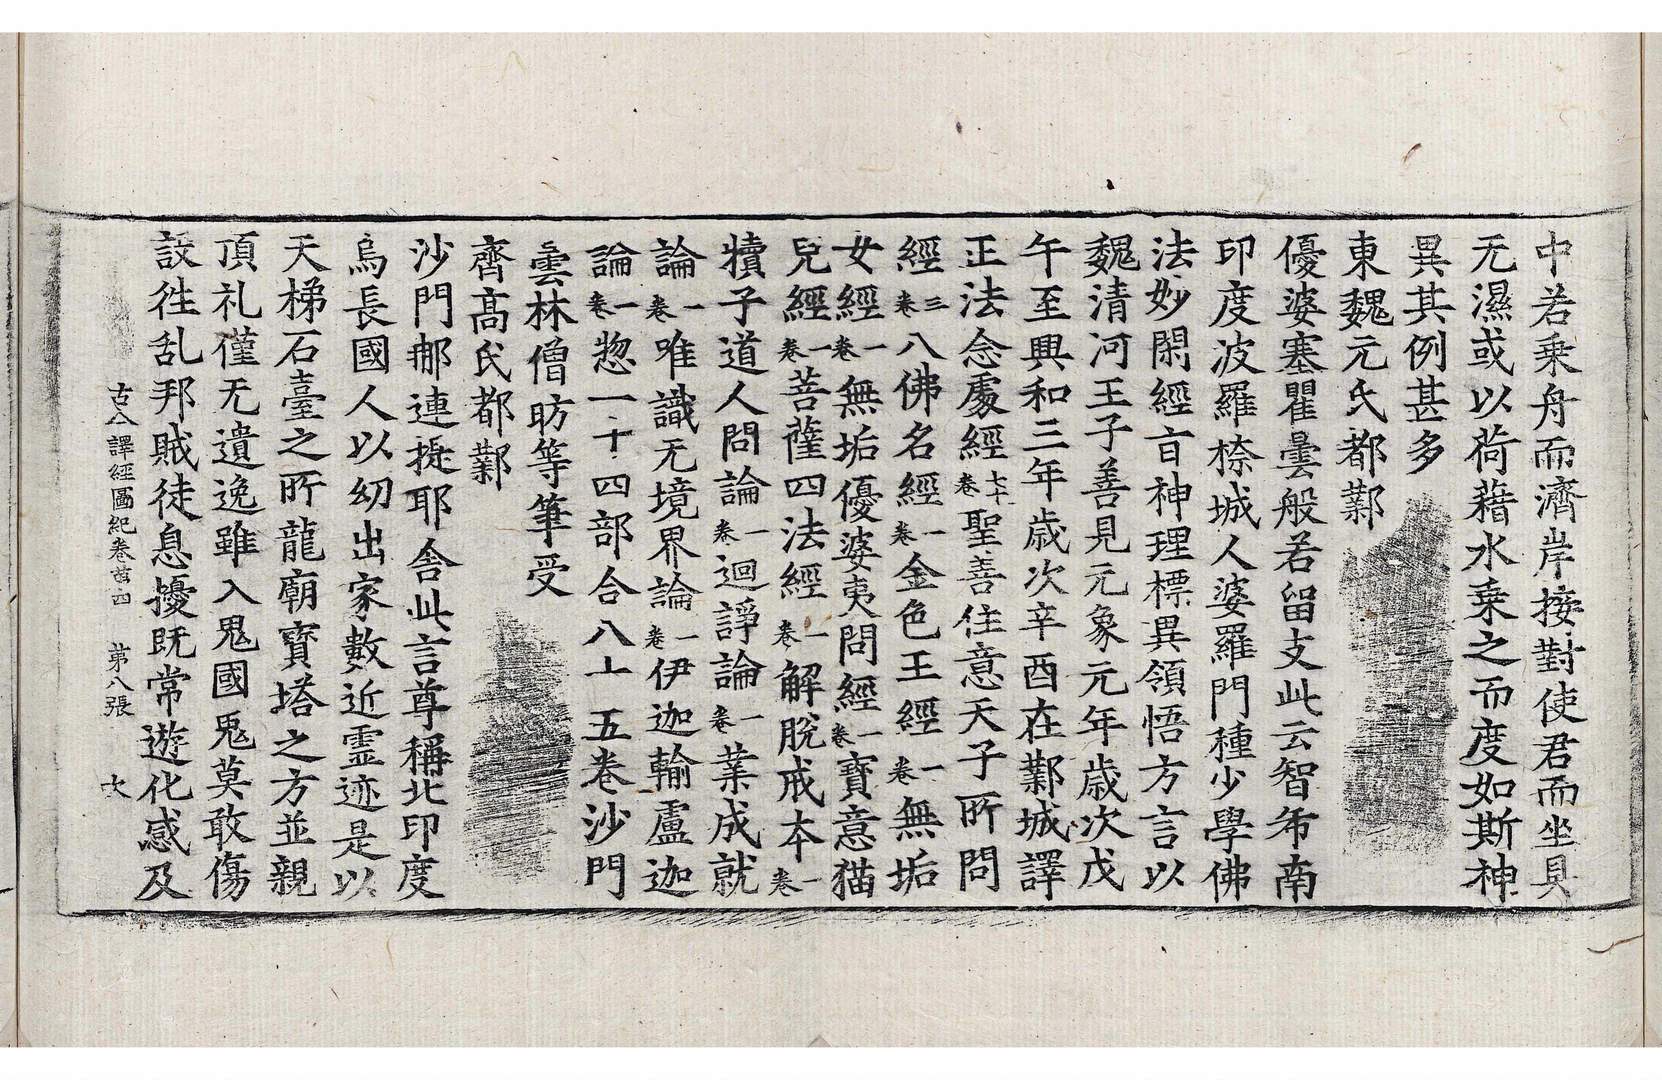 中若乗舟而濟岸接對使君而坐具
无濕或以荷藉水乗之而度如斯神
異其例甚多
東魏元氏都鄴
優婆塞瞿曇般若留支此云智希南
印度波羅㮈城人婆羅門種少學佛
法妙閑經旨神理標異領悟方言以
魏清河王子善見元象元年歲次戊
午至興和三年歲次辛酉在鄴城譯
正法念處經七十卷聖善住意天子所問
經三卷八佛名經一卷金色王經一卷無垢
女經一卷無垢優婆夷問經一卷寳意猫
兒經一卷菩薩四法經一卷解脫戒本一卷
犢子道人問論一卷迴諍論一卷業成就
論一卷唯識无境界論一卷伊迦輸盧迦
論一卷惣一十四部合八十五卷沙門
曇林僧昉等筆受
齊髙氏都鄴
沙門那連提耶舍此言尊稱北印度
烏長國人以幼出家數近霊迹是以
天梯石臺之所龍廟寳塔之方並親
頂礼僅无遺逸雖入鬼國鬼莫敢傷
設徃乱邦賊徒息擾既常遊化感及
古今譯經圖紀卷苐四 苐八張 次